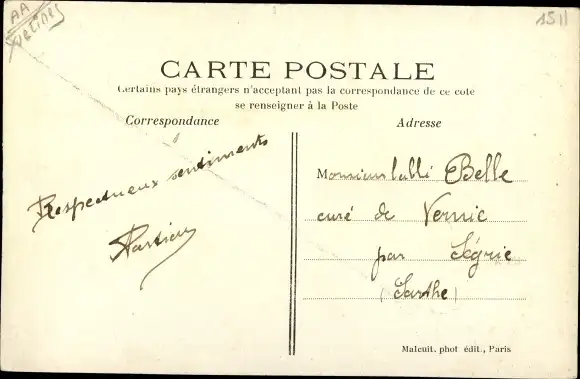 AA
Yvelines
1511
CARTE POSTALE
Certains pays étrangers n'acceptent pas la correspondance de ce cote
se renseigner à la Poste
Correspondance
Adresse
Respectueux sentiments
Monsieur l'abbé Belle
curé de Vernie
par Ségrie
(Sarthe)
Malcuit, phot édit., Paris